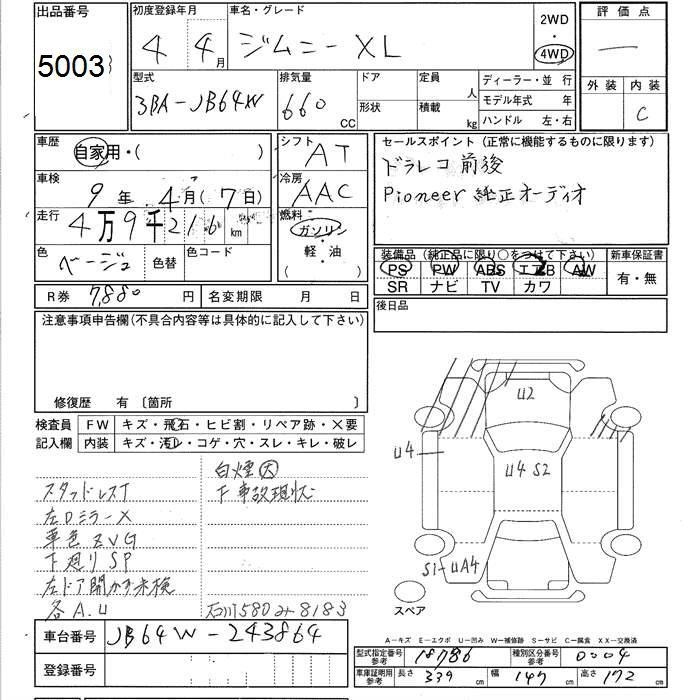 出品番号 初度登録年月 車名・グレード 2WD 評価点
5003 4 4月 ジムニー XL 4WD
型式 排気量 ドア 定員 人 ディーラー・並 行 外装 内装
3BA-JB64W 660 CC 形状 積載 kg モデル年式 年 C
ハンドル 左・右
車歴 自家用・( ) シフト AT セールスポイント (正常に機能するものに限ります)
車検 9年 4月(7日) 冷房 AAC ドラレコ 前後
走行 4万9千216km 燃料 ガソリン 軽・油 Pioneer 純正オーディオ
色 ベージュ 色替 色コード 装備品 (純正品に限り○をつけて下さい) 新車保証書
PS PW ABS エアB AW 有・無
SR ナビ TV カワ
R券 7,880円 名変期限 月 日 後日品
注意事項申告欄(不具合内容等は具体的に記入して下さい)
修復歴 有 〔箇所 〕
検査員 FW キズ・飛石・ヒビ割・リペア跡・X要
記入欄 内装 キズ・汚レ・コゲ・穴・スレ・キレ・破レ
スタッドレスT
左Dミラー X
車色 ZVG
下廻り SP
左ドア開かず未検
各A.U
白煙 大
下 事故現状
石川580み8183
U2
U4
U4 S2
S1-UA4
スペア
A-キズ E-エクボ U-凹み W-補修跡 S-サビ C-腐食 XX-交換済
車台番号 JB64W-243864
登録番号
型式指定番号 参考 18786 種別区分番号 参考 0004
車庫証明用 参考 長さ 339cm 幅 147cm 高さ 172cm